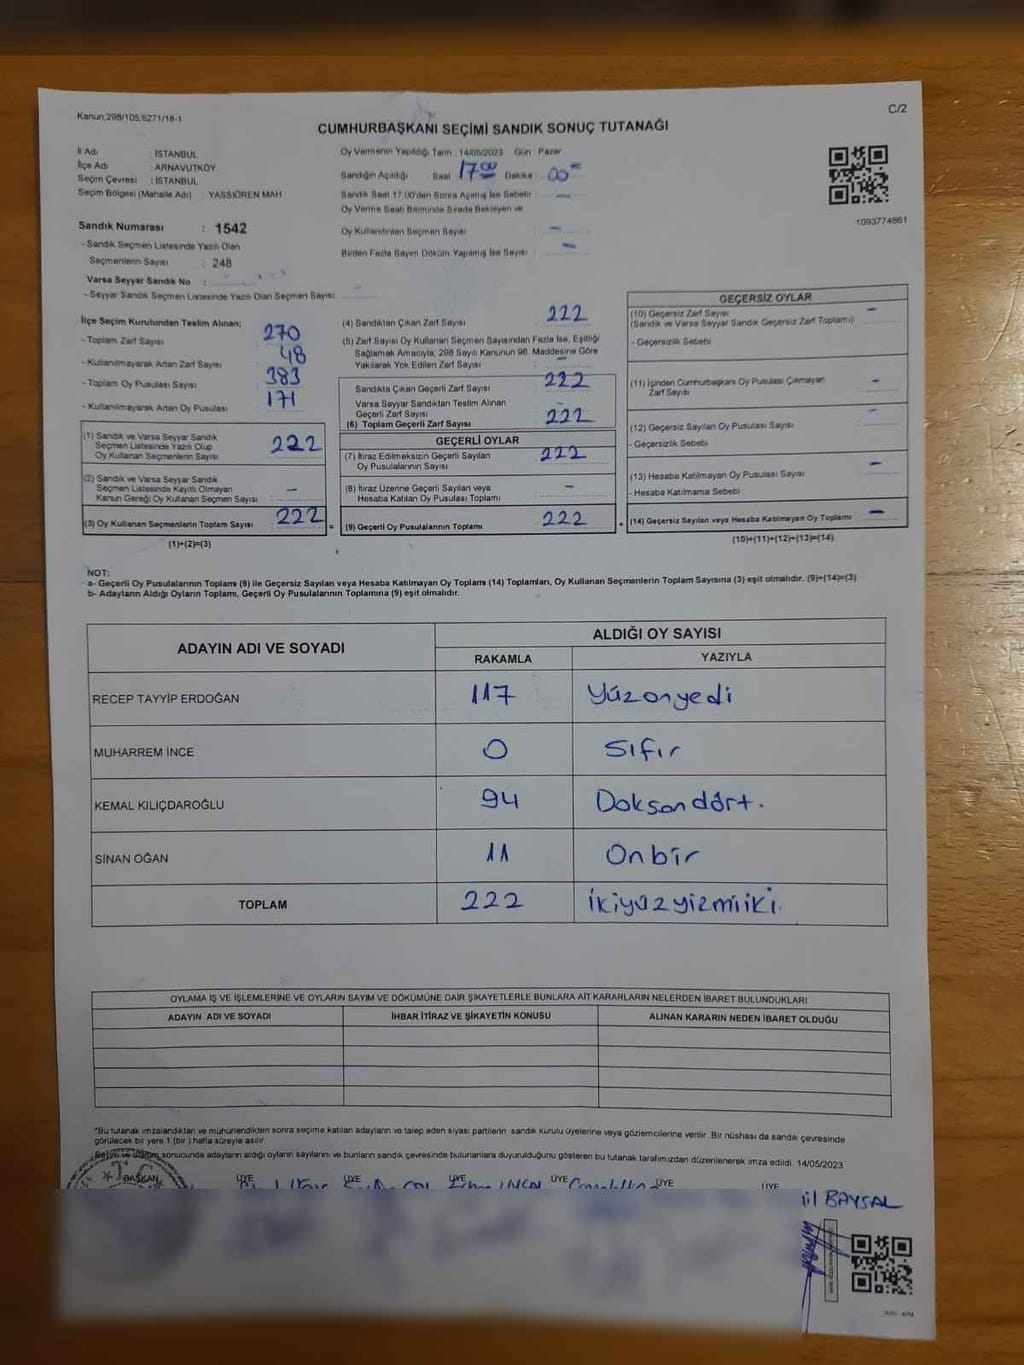 Kanun;298/105;6271/18-1
C/2
CUMHURBAŞKANI SEÇİMİ SANDIK SONUÇ TUTANAĞI
İl Adı : İSTANBUL
İlçe Adı : ARNAVUTKÖY
Seçim Çevresi : İSTANBUL
Seçim Bölgesi (Mahalle Adı) : YASSIÖREN MAH.
Sandık Numarası : 1542
- Sandık Seçmen Listesinde Yazılı Olan
Seçmenlerin Sayısı : 248
Varsa Seyyar Sandık No :
- Seyyar Sandık Seçmen Listesinde Yazılı Olan Seçmen Sayısı:
Oy Vermenin Yapıldığı Tarih : 14/05/2023 Gün : Pazar
Sandığın Açıldığı Saat 17:00 Dakika : 00
Sandık Saat 17.00'den Sonra Açılmış İse Sebebi : –
Oy Verme Saati Bitiminde Sırada Bekleyen ve
Oy Kullandırılan Seçmen Sayısı : –
Birden Fazla Sayım Döküm Yapılmış İse Sayısı : –
1093774861
İlçe Seçim Kurulundan Teslim Alınan;
- Toplam Zarf Sayısı : 270
- Kullanılmayarak Artan Zarf Sayısı : 48
- Toplam Oy Pusulası Sayısı : 383
- Kullanılmayarak Artan Oy Pusulası : 171
(1) Sandık ve Varsa Seyyar Sandık
Seçmen Listesinde Yazılı Olup
Oy Kullanan Seçmenlerin Sayısı : 222
(2) Sandık ve Varsa Seyyar Sandık
Seçmen Listesinde Kayıtlı Olmayan
Kanun Gereği Oy Kullanan Seçmen Sayısı : –
(3) Oy Kullanan Seçmenlerin Toplam Sayısı : 222
(1)+(2)=(3)
(4) Sandıktan Çıkan Zarf Sayısı : 222
(5) Zarf Sayısı Oy Kullanan Seçmen Sayısından Fazla İse, Eşitliği
Sağlamak Amacıyla, 298 Sayılı Kanunun 98. Maddesine Göre
Yakılarak Yok Edilen Zarf Sayısı : –
Sandıkta Çıkan Geçerli Zarf Sayısı : 222
Varsa Seyyar Sandıktan Teslim Alınan
Geçerli Zarf Sayısı : –
(6) Toplam Geçerli Zarf Sayısı : 222
GEÇERLİ OYLAR
(7) İtiraz Edilmeksizin Geçerli Sayılan
Oy Pusulalarının Sayısı : 222
(8) İtiraz Üzerine Geçerli Sayılan veya
Hesaba Katılan Oy Pusulası Toplamı : –
(9) Geçerli Oy Pusulalarının Toplamı : 222
GEÇERSİZ OYLAR
(10) Geçersiz Zarf Sayısı : –
(Sandık ve Varsa Seyyar Sandık Geçersiz Zarf Toplamı)
- Geçersizlik Sebebi :
(11) İçinden Cumhurbaşkanı Oy Pusulası Çıkmayan
Zarf Sayısı : –
(12) Geçersiz Sayılan Oy Pusulası Sayısı : –
- Geçersizlik Sebebi :
(13) Hesaba Katılmayan Oy Pusulası Sayısı : –
- Hesaba Katılmama Sebebi :
(14) Geçersiz Sayılan veya Hesaba Katılmayan Oy Toplamı : –
(10)+(11)+(12)+(13)=(14)
NOT:
a- Geçerli Oy Pusulalarının Toplamı (9) ile Geçersiz Sayılan veya Hesaba Katılmayan Oy Toplamı (14) Toplamları, Oy Kullanan Seçmenlerin Toplam Sayısına (3) eşit olmalıdır. (9)+(14)=(3)
b- Adayların Aldığı Oyların Toplamı, Geçerli Oy Pusulalarının Toplamına (9) eşit olmalıdır.
ADAYIN ADI VE SOYADI
ALDIĞI OY SAYISI
RAKAMLA YAZIYLA
RECEP TAYYİP ERDOĞAN 117 Yüzonyedi
MUHARREM İNCE 0 Sıfır
KEMAL KILIÇDAROĞLU 94 Doksandört.
SİNAN OĞAN 11 Onbir
TOPLAM 222 İkiyüzyirmiiki.
OYLAMA İŞ VE İŞLEMLERİNE VE OYLARIN SAYIM VE DÖKÜMÜNE DAİR ŞİKAYETLERLE BUNLARA AİT KARARLARIN NELERDEN İBARET BULUNDUKLARI
ADAYIN ADI VE SOYADI İHBAR İTİRAZ VE ŞİKAYETİN KONUSU ALINAN KARARIN NEDEN İBARET OLDUĞU
*Bu tutanak imzalandıktan ve mühürlendikten sonra seçime katılan adayların ve talep eden siyasi partilerin sandık kurulu üyelerine veya gözlemcilerine verilir. Bir nüshası da sandık çevresinde
görülecek bir yere 1 (bir ) hafta süreyle asılır.
Sayım ve döküm sonucunda adayların aldığı oyların sayılarını ve bunların sandık çevresinde bulunanlara duyurulduğunu gösteren bu tutanak tarafımızdan düzenlenerek imza edildi. 14/05/2023
T.C.
BAŞKAN ÜYE ÜYE ÜYE ÜYE ÜYE ÜYE
BAYSAL